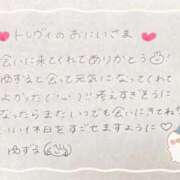 トレヴィのおにいさま
会いに来てくれてありがとう
ゆずると会って元気になってくれて
よかった(い)!! 考えすぎそうに
なったらまたいつでも会いにきてね
いい1日をすごせますように♡
ゆずる